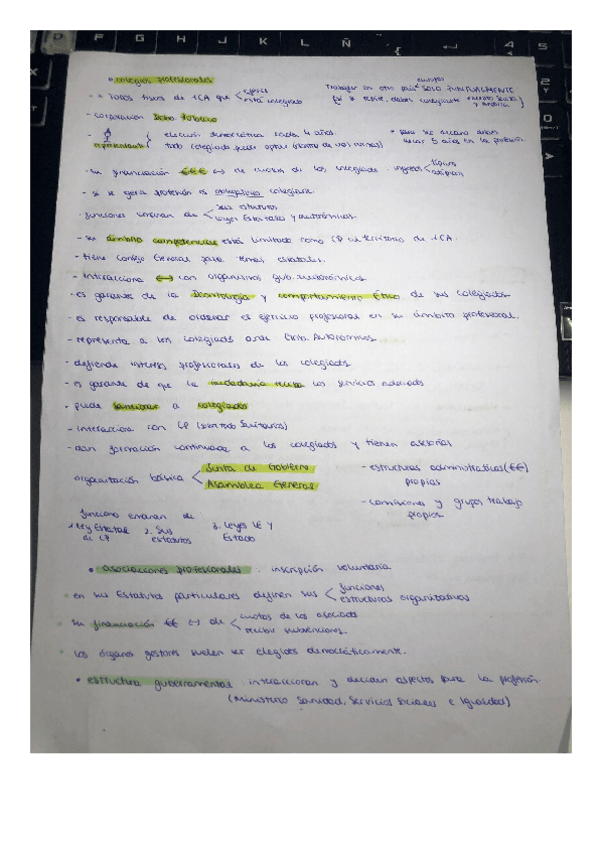 • colegios profesionales
- • Todos tienen de 1 CA que < ejerce / está colegiado
Trabajar en otro país SOLO PUNTUALMENTE
- corporación Dcho. Público
- representante } elección democrática cada 4 años.
todo colegiado puede optar
• para ser decano deben llevar 5 años en la profesión
- su financiación €€€ ↔ de cuotas de los colegiados. ingresos < típicos / atípicos
- si se ejerce profesión es obligatorio colegiarse.
- funciones emanan de < sus estatutos / leyes Estatales y autonómicas.
- su ámbito competencias está limitado como CP al territorio de 1 CA.
- tiene Consejo General para temas estatales.
- interacciona ↔ con organismos gub. autonómicos
- es garante de la Deontología y comportamiento Ético de sus colegiados
- es responsable de ordenar el ejercicio profesional en su ámbito profesional.
- representa a los colegiados ante Entes. Autonómicos
- defiende intereses profesionales de los colegiados
- es garante de que la ciudadanía reciba los servicios adecuados
- puede sancionar a colegiados
- interacciona con CP (sobretodo sanitarios)
- dan formación continuada a los colegiados y tienen asesorías
organización básica < Junta de Gobierno / Asamblea General
- estructuras administrativas (€€) propias
- comisiones y grupos trabajo propios
funciones emanan de
1. Ley Estatal de CP 2. Sus estatutos 3. Leyes UE y Estado
• asociaciones profesionales : inscripción voluntaria
• en sus Estatutos particulares definen sus < funciones / estructuras organizativas
su financiación €€ ↔ de < cuotas de los asociados / recibir subvenciones.
• los órganos gestores suelen ser elegidos democráticamente.
• estructura gubernamental : interaccionan y deciden aspectos para la profesión
(Ministerio Sanidad, Servicios Sociales e Igualdad)